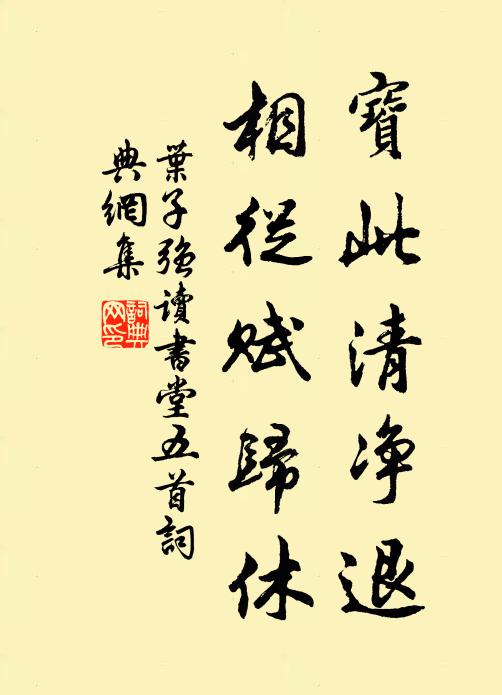 寶此清净退
相從賦歸休
葉子強讀書堂五首詞
典網集
詞典網印